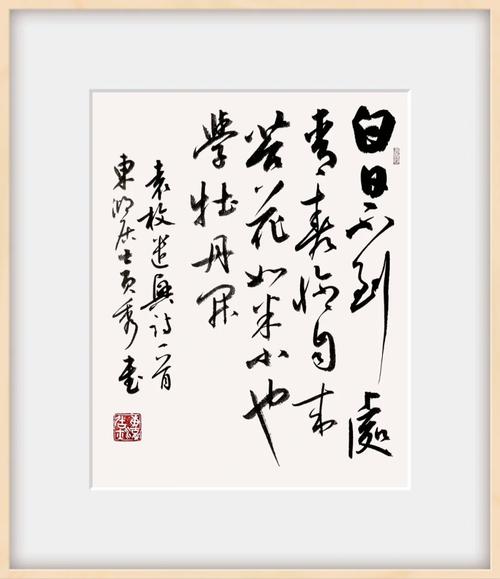 白日不到處
青春恰自来
苔花如米小也
學牡丹開
袁枚遣興詩一首
東湖居士秀書